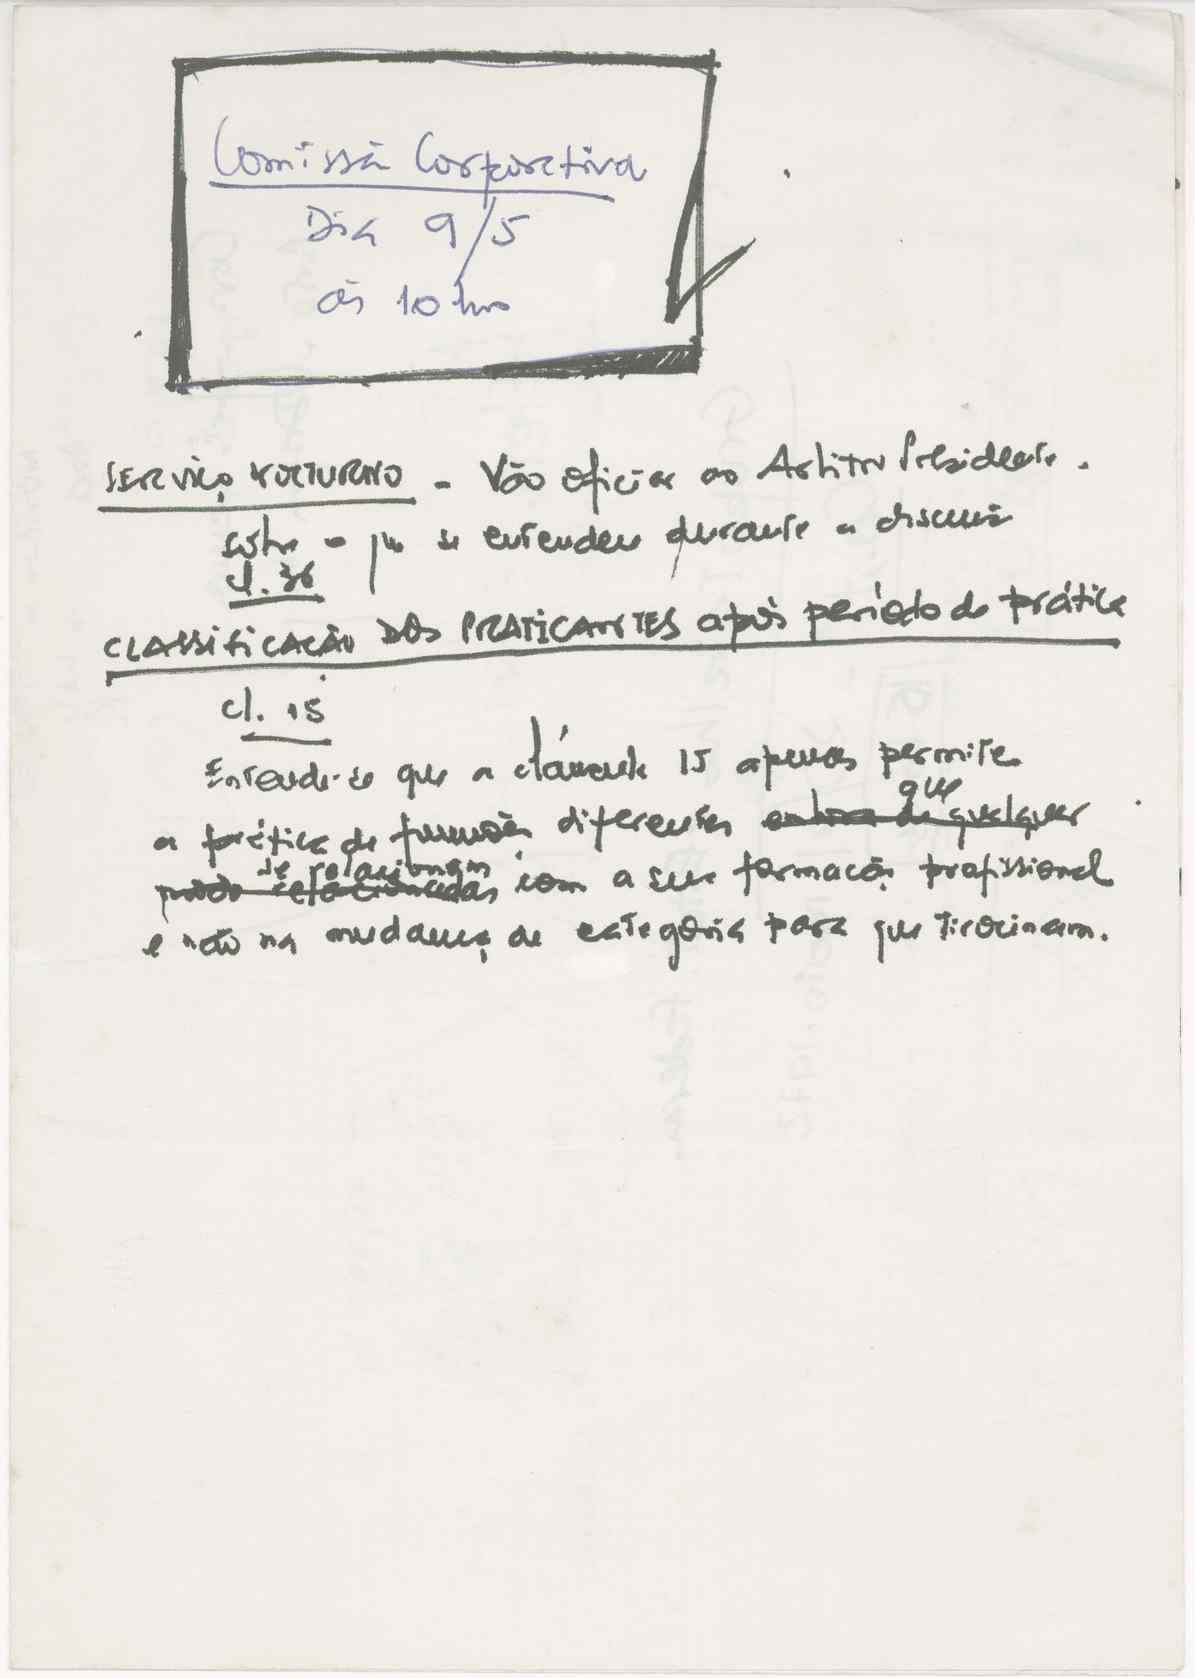 Comissão Corporativa
Dia 9/5
às 10 hrs
SERVIÇO NOCTURNO - Vão oficiar ao Arbitro Presidente.
sobre o que se entendeu durante a discussão
cl. 36
CLASSIFICAÇÃO DOS PRATICANTES após período de prática
cl. 15
Entende-se que a cláusula 15 apenas permite
que
a prática de funções diferentes embora de qualquer
se relacionam
modo relacionadas com a sua formação profissional
e não na mudança de categoria para que tirocinam.